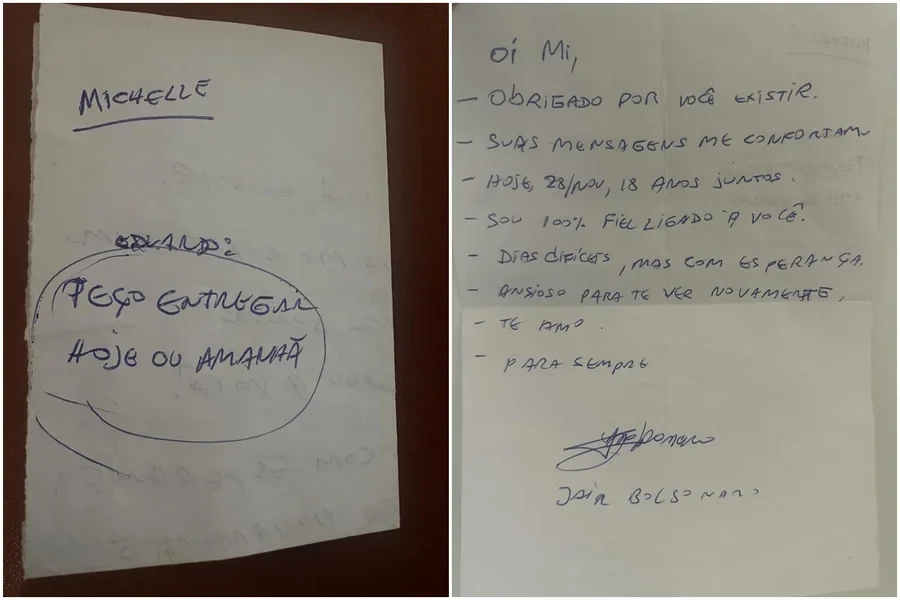 MICHELLE
PEÇO ENTREGAR
HOJE OU AMANHÃ
Oi Mi,
- OBRIGADO POR VOCÊ EXISTIR.
- SUAS MENSAGENS ME CONFORTAM.
- HOJE, 28/NOV, 18 ANOS JUNTOS.
- SOU 100% FIEL LIGADO À VOCÊ.
- DIAS DIFÍCEIS, MAS COM ESPERANÇA.
- ANSIOSO PARA TE VER NOVAMENTE.
- TE AMO.
- PARA SEMPRE
JAIR BOLSONARO